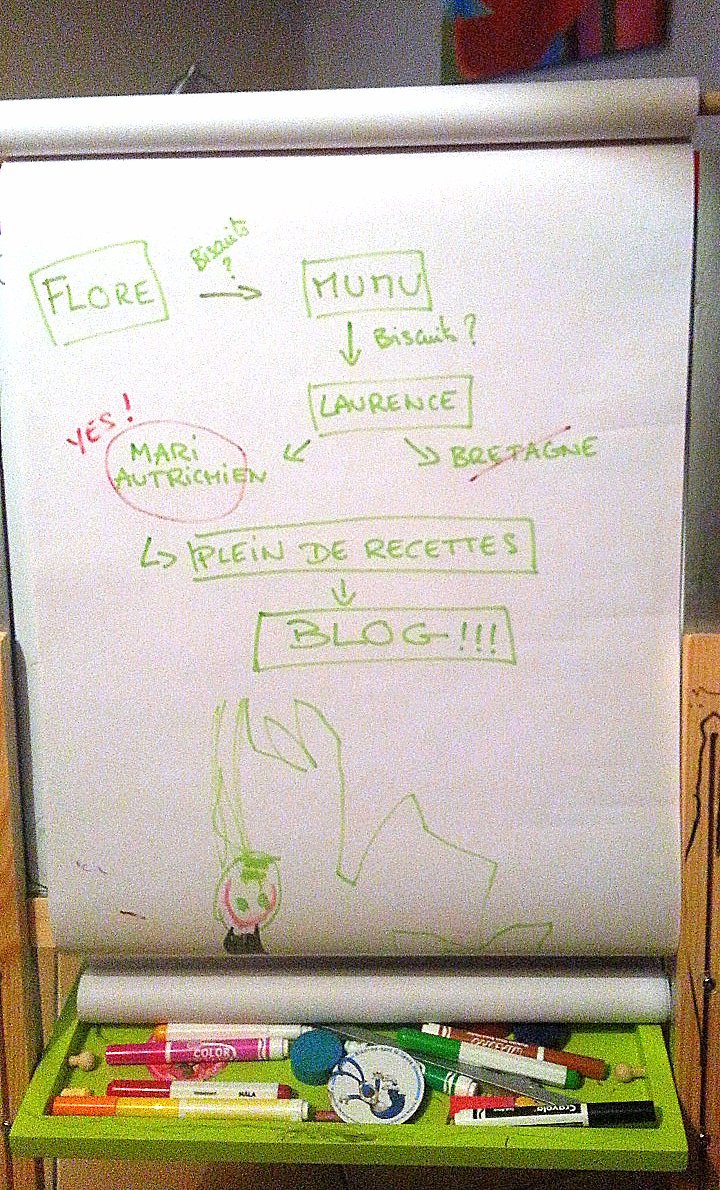 FLORE
Biscuits
?
MUMU
Biscuits ?
LAURENCE
YES !
MARi
AUTRiCHiEN
BRETAGNE
PLEiN DE RECETTES
BLOG !!!
COLOR
MÅLA
Crayola